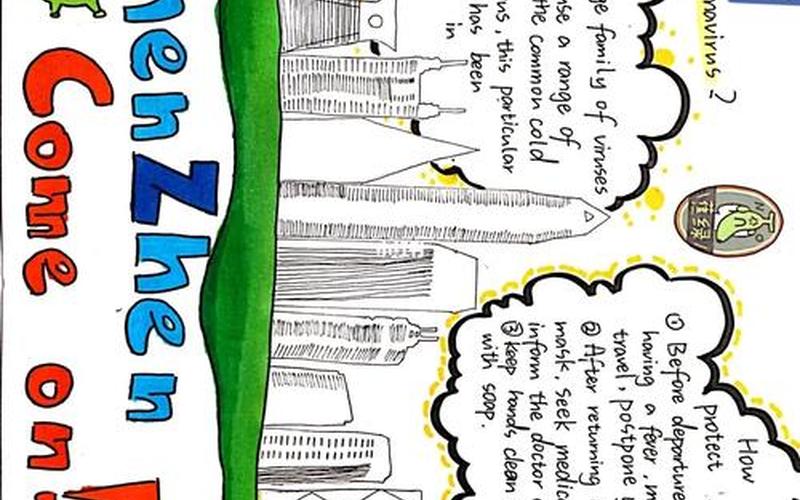 navirus?
ge family of viruses
se a range of
the common cold
us, this particular
has been
in
How
protect
① Before departur
having a fever
travel, postpone
② After returning
mask, seek medic
inform the doctor
③ keep hands clean
with soap.
henZhen
Come on!